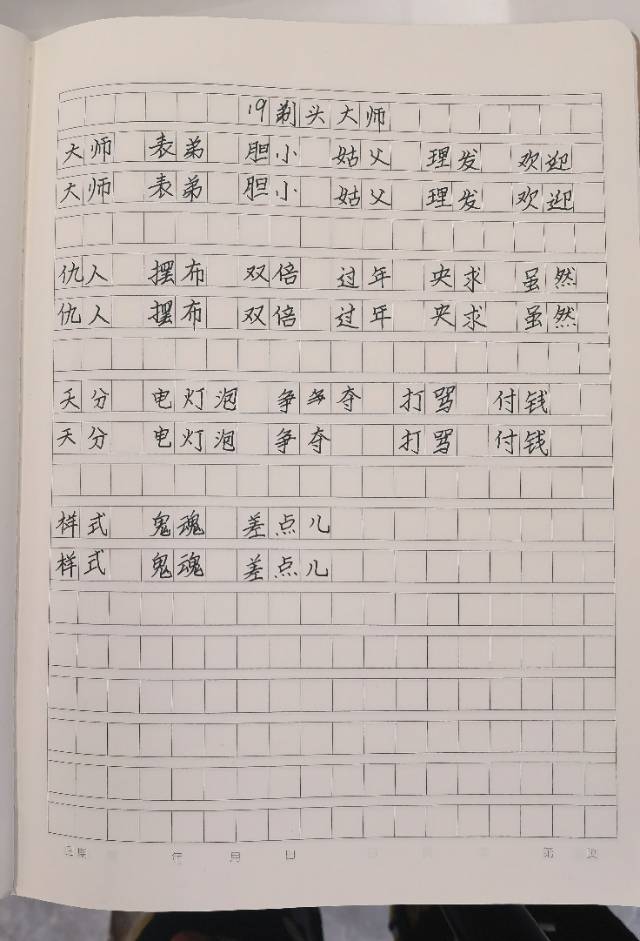 19剃头大师
大师 表弟 胆小 姑父 理发 欢迎
大师 表弟 胆小 姑父 理发 欢迎
仇人 摆布 双倍 过年 央求 虽然
仇人 摆布 双倍 过年 央求 虽然
天分 电灯泡 争争夺 打骂 付钱
天分 电灯泡 争夺 打骂 付钱
样式 鬼魂 差点儿
样式 鬼魂 差点儿
年 月 日 第 次